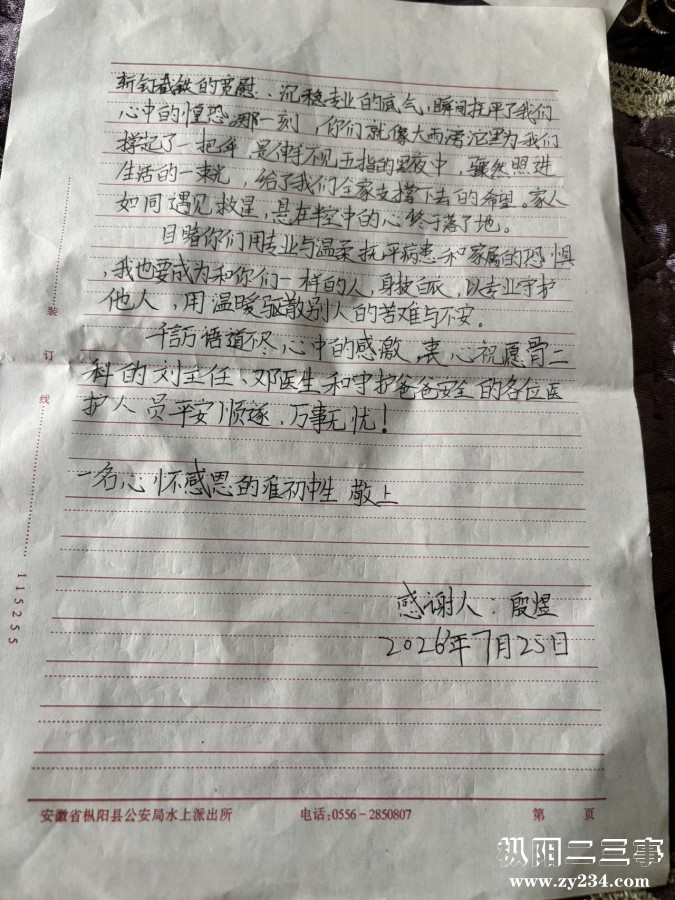 斩钉截铁的宽慰、沉稳专业的底气,瞬间抚平了我们
心中的惶恐。那一刻,你们就像大雨滂沱里为我们
撑起了一把伞,是伸手不见五指的黑夜中,骤然照进
生活的一束光,给了我们全家支撑下去的希望。家人
如同遇见救星,悬在半空中的心终于落了地。
目睹你们用专业与温柔抚平病患和家属的恐惧
,我也要成为和你们一样的人,身披白衣,以专业守护
他人,用温暖驱散别人的苦难与不安。
千言万语道不尽心中的感激,衷心祝愿骨二
科的刘主任、邓医生和守护爸爸安全的各位医
护人员平安顺遂,万事无忧!
一名心怀感恩的准初中生 敬上
感谢人:殷煜
2026年7月25日
装
订
线
115255
安徽省枞阳县公安局水上派出所 电话:0556-2850807 第 页
枞阳二三事
www.zy234.com